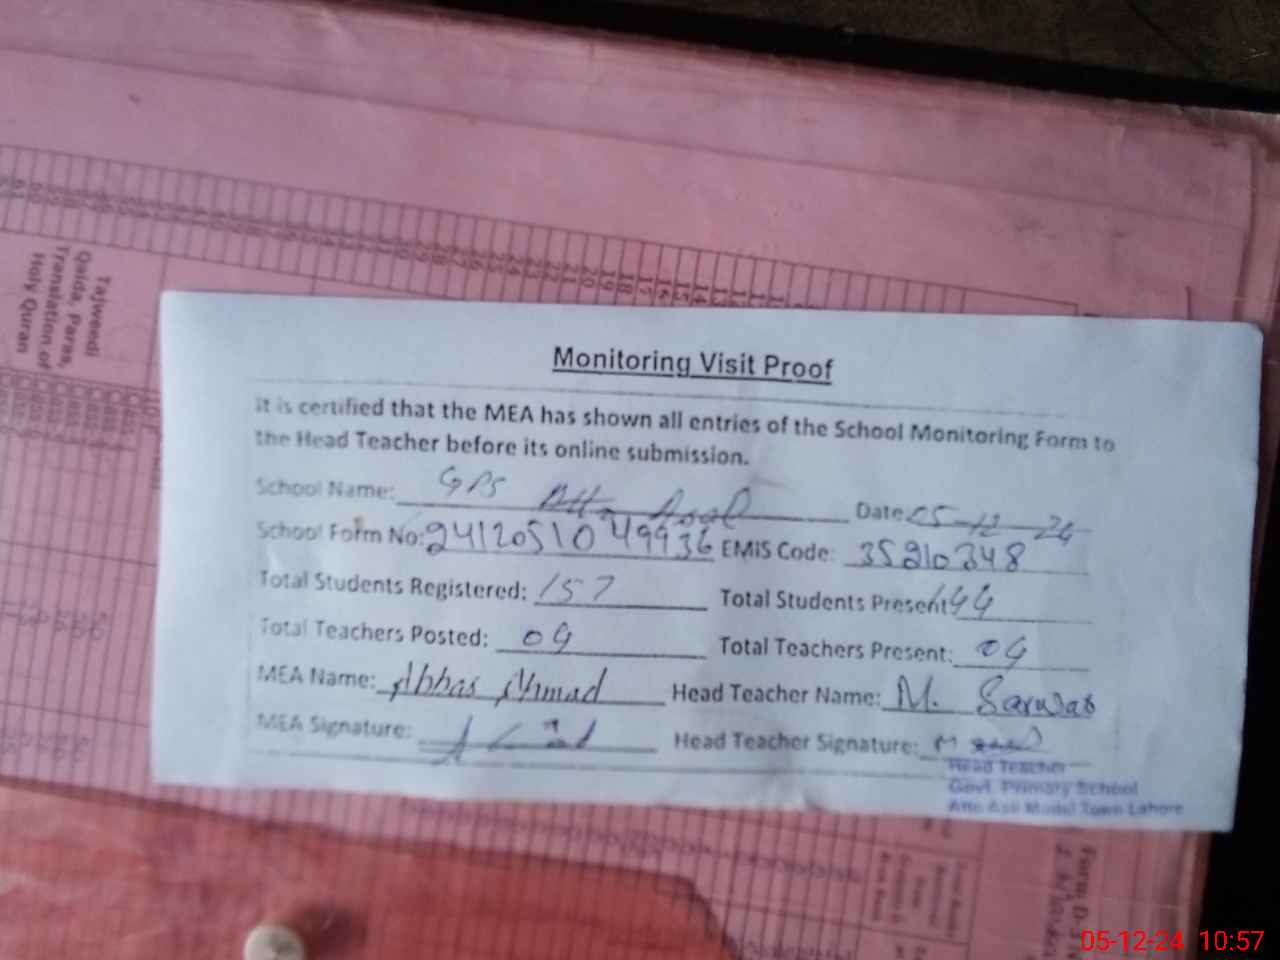 Tajweedi
Qaida, Paras,
Translation of
Holy Quran
Monitoring Visit Proof
It is certified that the MEA has shown all entries of the School Monitoring Form to
the Head Teacher before its online submission.
School Name: GPS Atta Asal Date: 05-12-24
School Form No: 2412051049936 EMIS Code: 35210348
Total Students Registered: 157 Total Students Present: 144
Total Teachers Posted: 04 Total Teachers Present: 04
MEA Name: Abbas Ahmad Head Teacher Name: M. Sarwar
MEA Signature: Head Teacher Signature:
Head Teacher
Govt. Primary School
Atto Asil Model Town Lahore
05-12-24 10:57